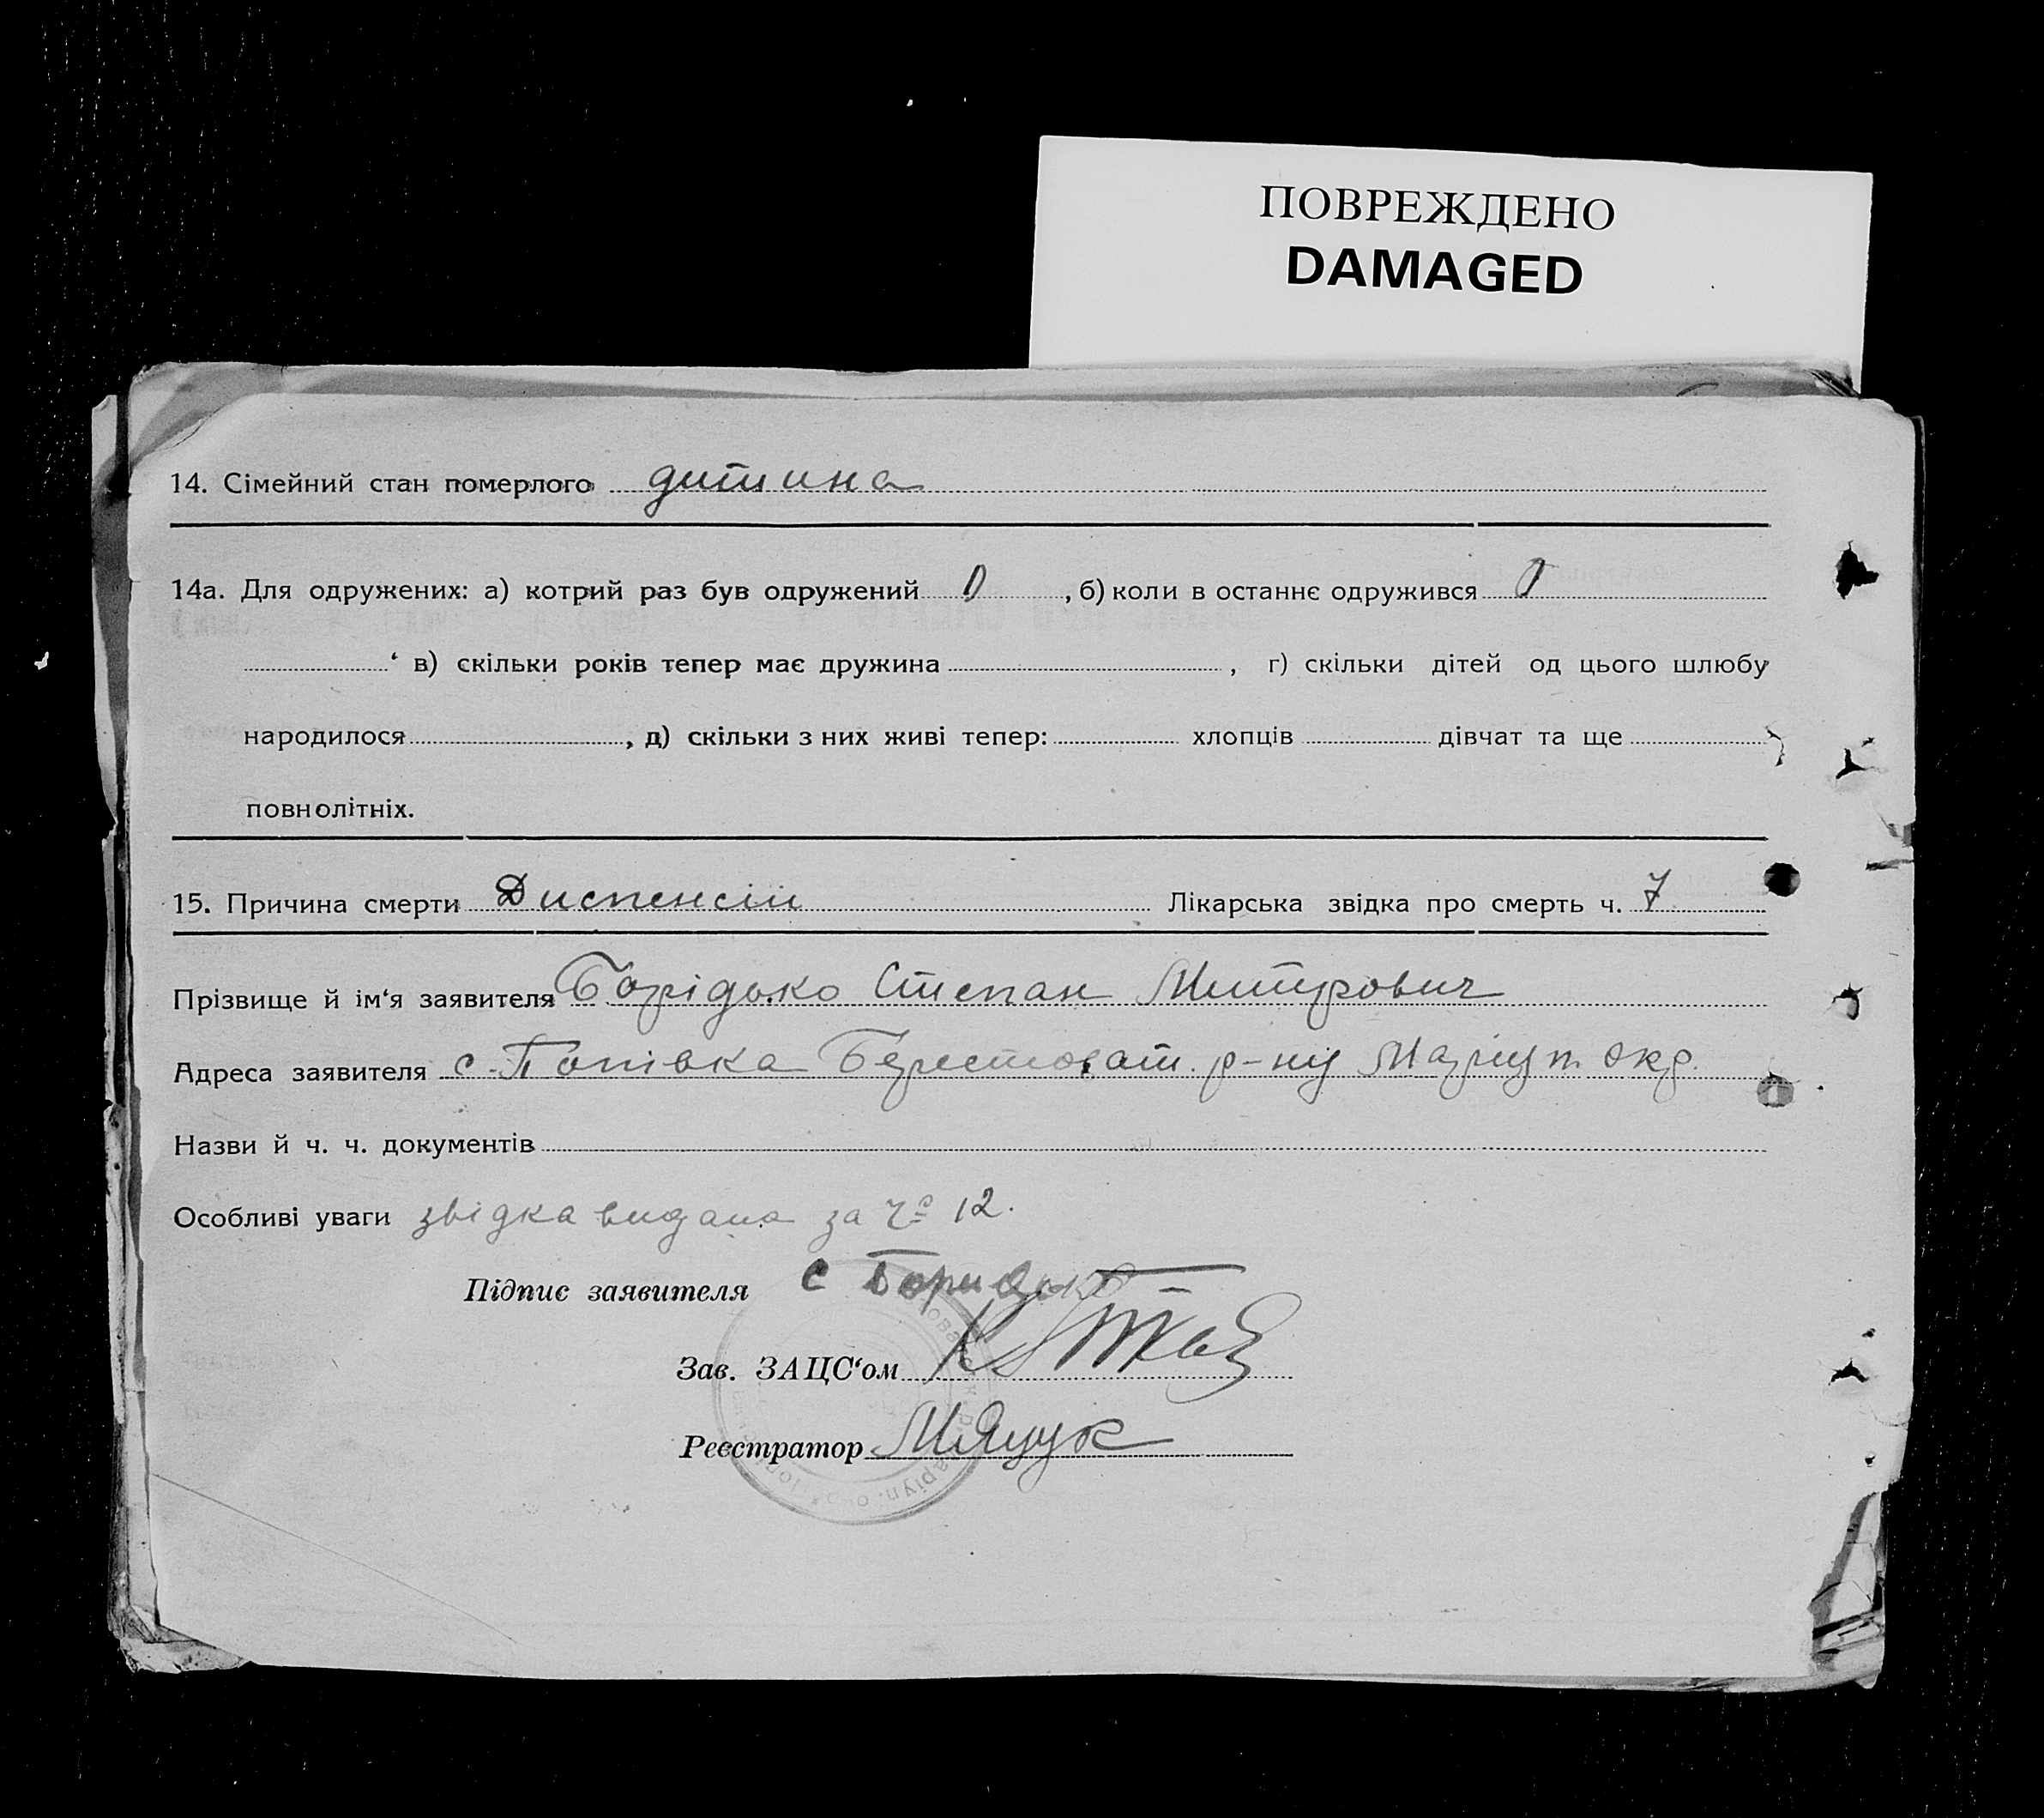 ПОВРЕЖДЕНО
DAMAGED
14. Сімейний стан померлого дитина
14а. Для одружених: а) котрий раз був одружений 0, б) коли в останнє одружився 0
‘ в) скільки років тепер має дружина , г) скільки дітей од цього шлюбу
народилося , д) скільки з них живі тепер: хлопців дівчат та ще
повнолітніх.
15. Причина смерти Диспенсіи Лікарська звідка про смерть ч. 7
Прізвище й ім‘я заявителя Борідько Степан Митрович
Адреса заявителя с. Попівка Берестоват. р-ну Маріуп. окр.
Назви й ч. ч. документів
Особливі уваги звідка видана за ч° 12.
Підпис заявителя С Боридько
Зав. ЗАЦС‘ом
Реєстратор